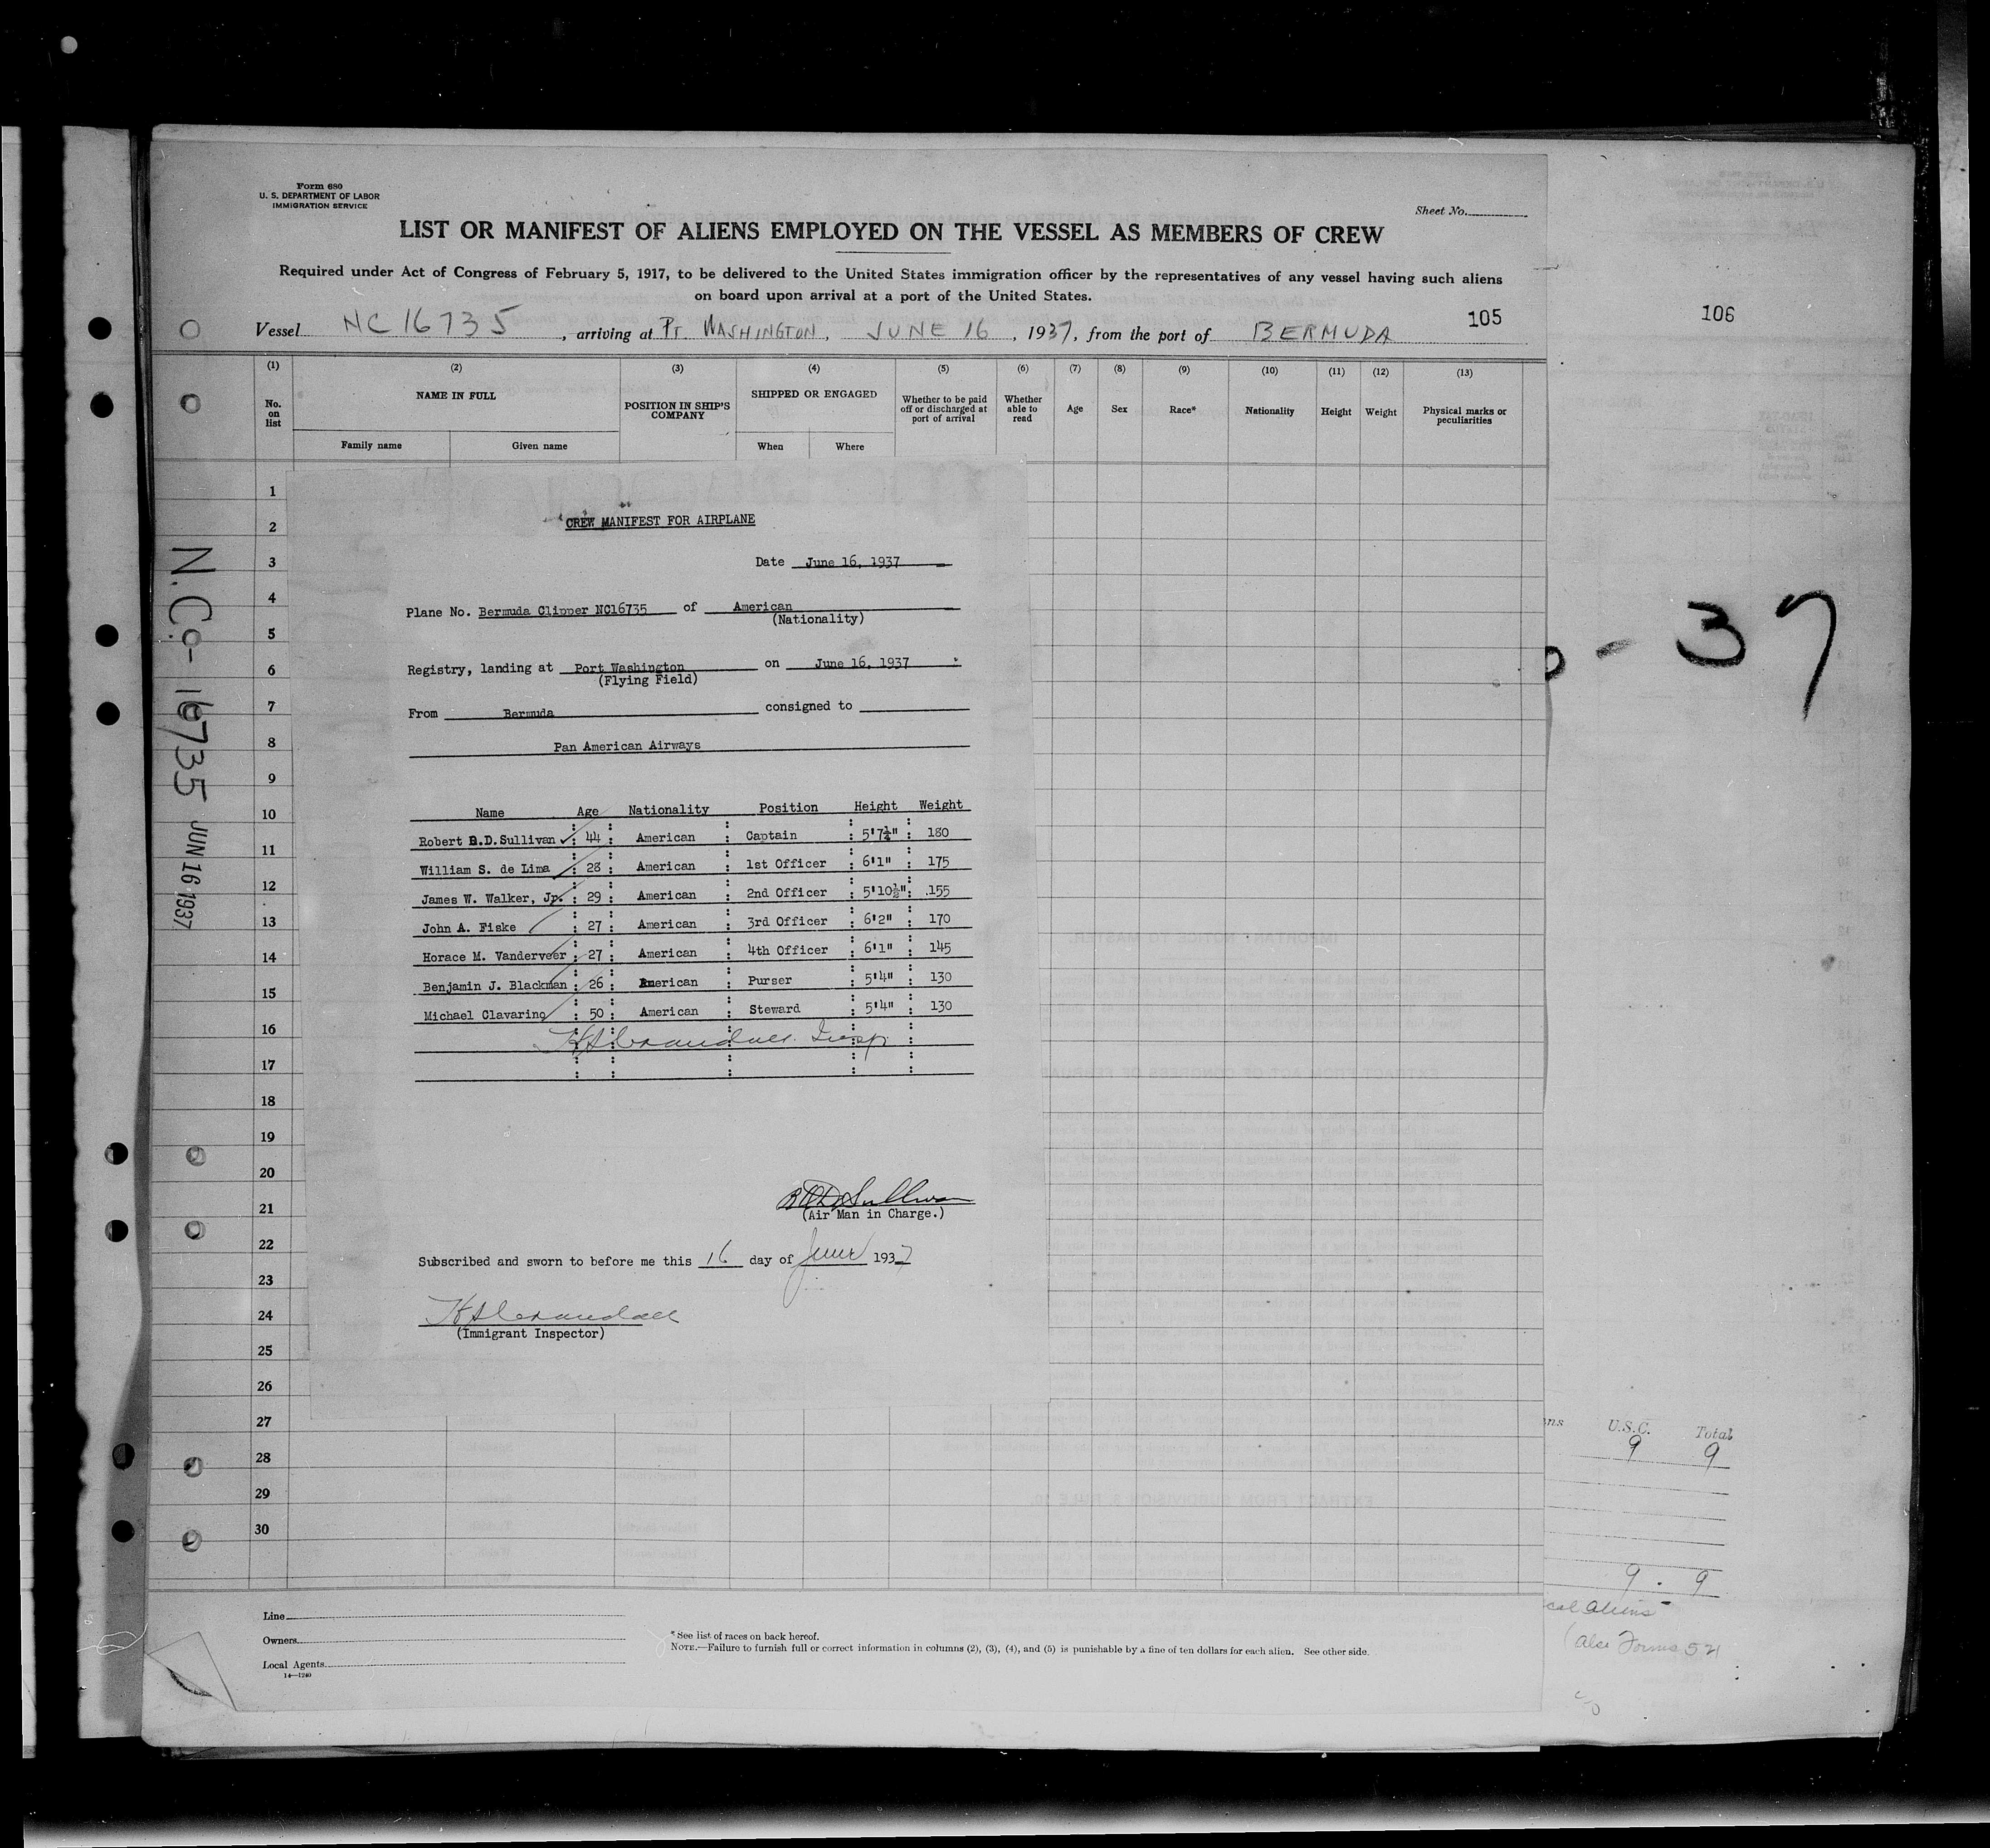 Form 680
U. S. DEPARTMENT OF LABOR
IMMIGRATION SERVICE
Sheet No.
LIST OR MANIFEST OF ALIENS EMPLOYED ON THE VESSEL AS MEMBERS OF CREW
Required under Act of Congress of February 5, 1917, to be delivered to the United States immigration officer by the representatives of any vessel having such aliens
on board upon arrival at a port of the United States.
105
106
Vessel NC 16735, arriving at Pt. WASHINGTON, JUNE 16, 1937, from the port of BERMUDA
(1) (2) (3) (4) (5) (6) (7) (8) (9) (10) (11) (12) (13)
No. on list
NAME IN FULL
Family name Given name
POSITION IN SHIP'S COMPANY
SHIPPED OR ENGAGED
When Where
Whether to be paid off or discharged at port of arrival
Whether able to read
Age Sex Race* Nationality Height Weight
Physical marks or peculiarities
1
2
3
4
5
6
7
8
9
10
11
12
13
14
15
16
17
18
19
20
21
22
23
24
25
26
27
28
29
30
N.C.- 16735 JUN 16 1937
CREW MANIFEST FOR AIRPLANE
Date June 16, 1937
Plane No. Bermuda Clipper NC16735 of American
(Nationality)
Registry, landing at Port Washington on June 16, 1937
(Flying Field)
From Bermuda consigned to
Pan American Airways
Name Age Nationality Position Height Weight
Robert B.D.Sullivan : 44 : American : Captain : 5'7¼" : 180
William S. de Lima : 28 : American : 1st Officer : 6'1" : 175
James W. Walker, Jr. : 29 : American : 2nd Officer : 5'10½" : 155
John A. Fiske : 27 : American : 3rd Officer : 6'2" : 170
Horace M. Vanderveer : 27 : American : 4th Officer : 6'1" : 145
Benjamin J. Blackman : 26 : American : Purser : 5'4" : 130
Michael Clavarino : 50 : American : Steward : 5'4" : 130
Insp.
Sullivan
(Air Man in Charge.)
Subscribed and sworn to before me this 16 day of June 1937
(Immigrant Inspector)
Line
Owners
Local Agents
14—1240
* See list of races on back hereof.
NOTE.—Failure to furnish full or correct information in columns (2), (3), (4), and (5) is punishable by a fine of ten dollars for each alien. See other side.
- 37
U.S.C. Total
9 9
9 . 9
aliens
(Also Forms 521